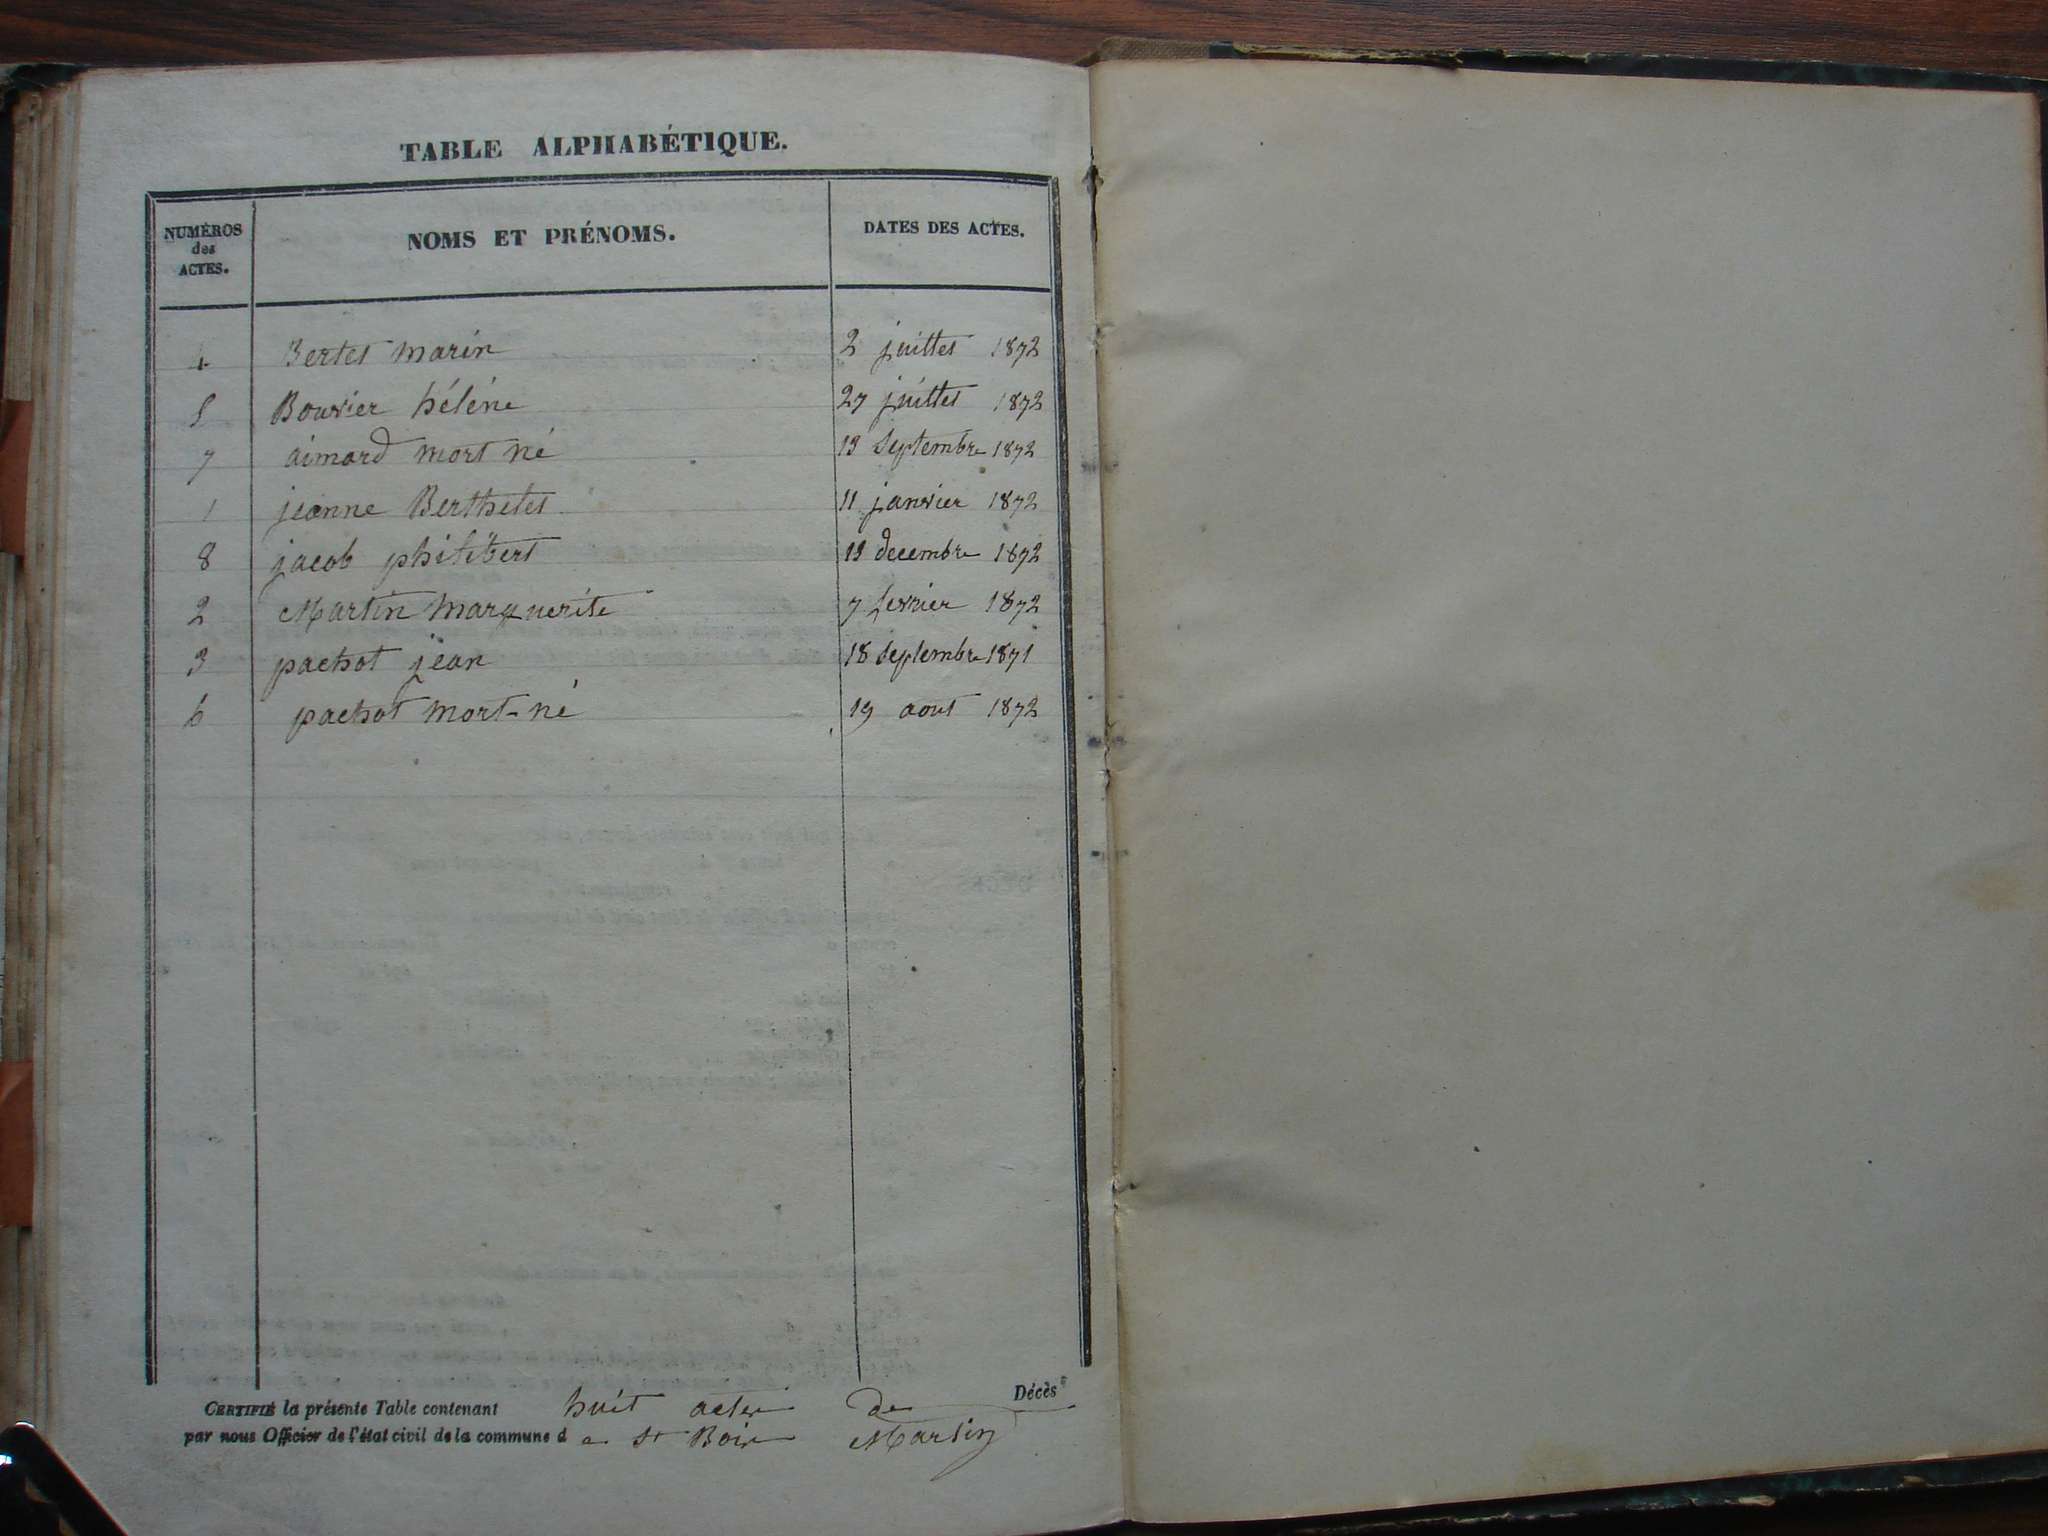 TABLE ALPHABÉTIQUE.
NUMÉROS des ACTES. NOMS ET PRÉNOMS. DATES DES ACTES.
4 Bertet marin 2 juillet 1872
5 Bouvier hélène 27 juillet 1872
7 aimard mort né 13 Septembre 1872
1 jeanne Berthelet 11 janvier 1872
8 jacob philibert 13 decembre 1872
2 Martin Marguerite 7 fevrier 1872
3 pachot jean 18 Septembre 1871
6 pachot mort-né 19 aout 1872
CERTIFIÉ la présente Table contenant huit actes de Décès
par nous Officier de l'état civil de la commune de St Boix Martin